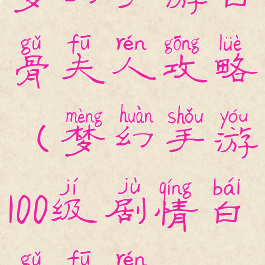 梦幻手游白
gǔ fū rén gōng lüè
骨夫人攻略
mèng huàn shǒu yóu
(梦幻手游
jí jù qíng bái
100级剧情白
gǔ fū rén